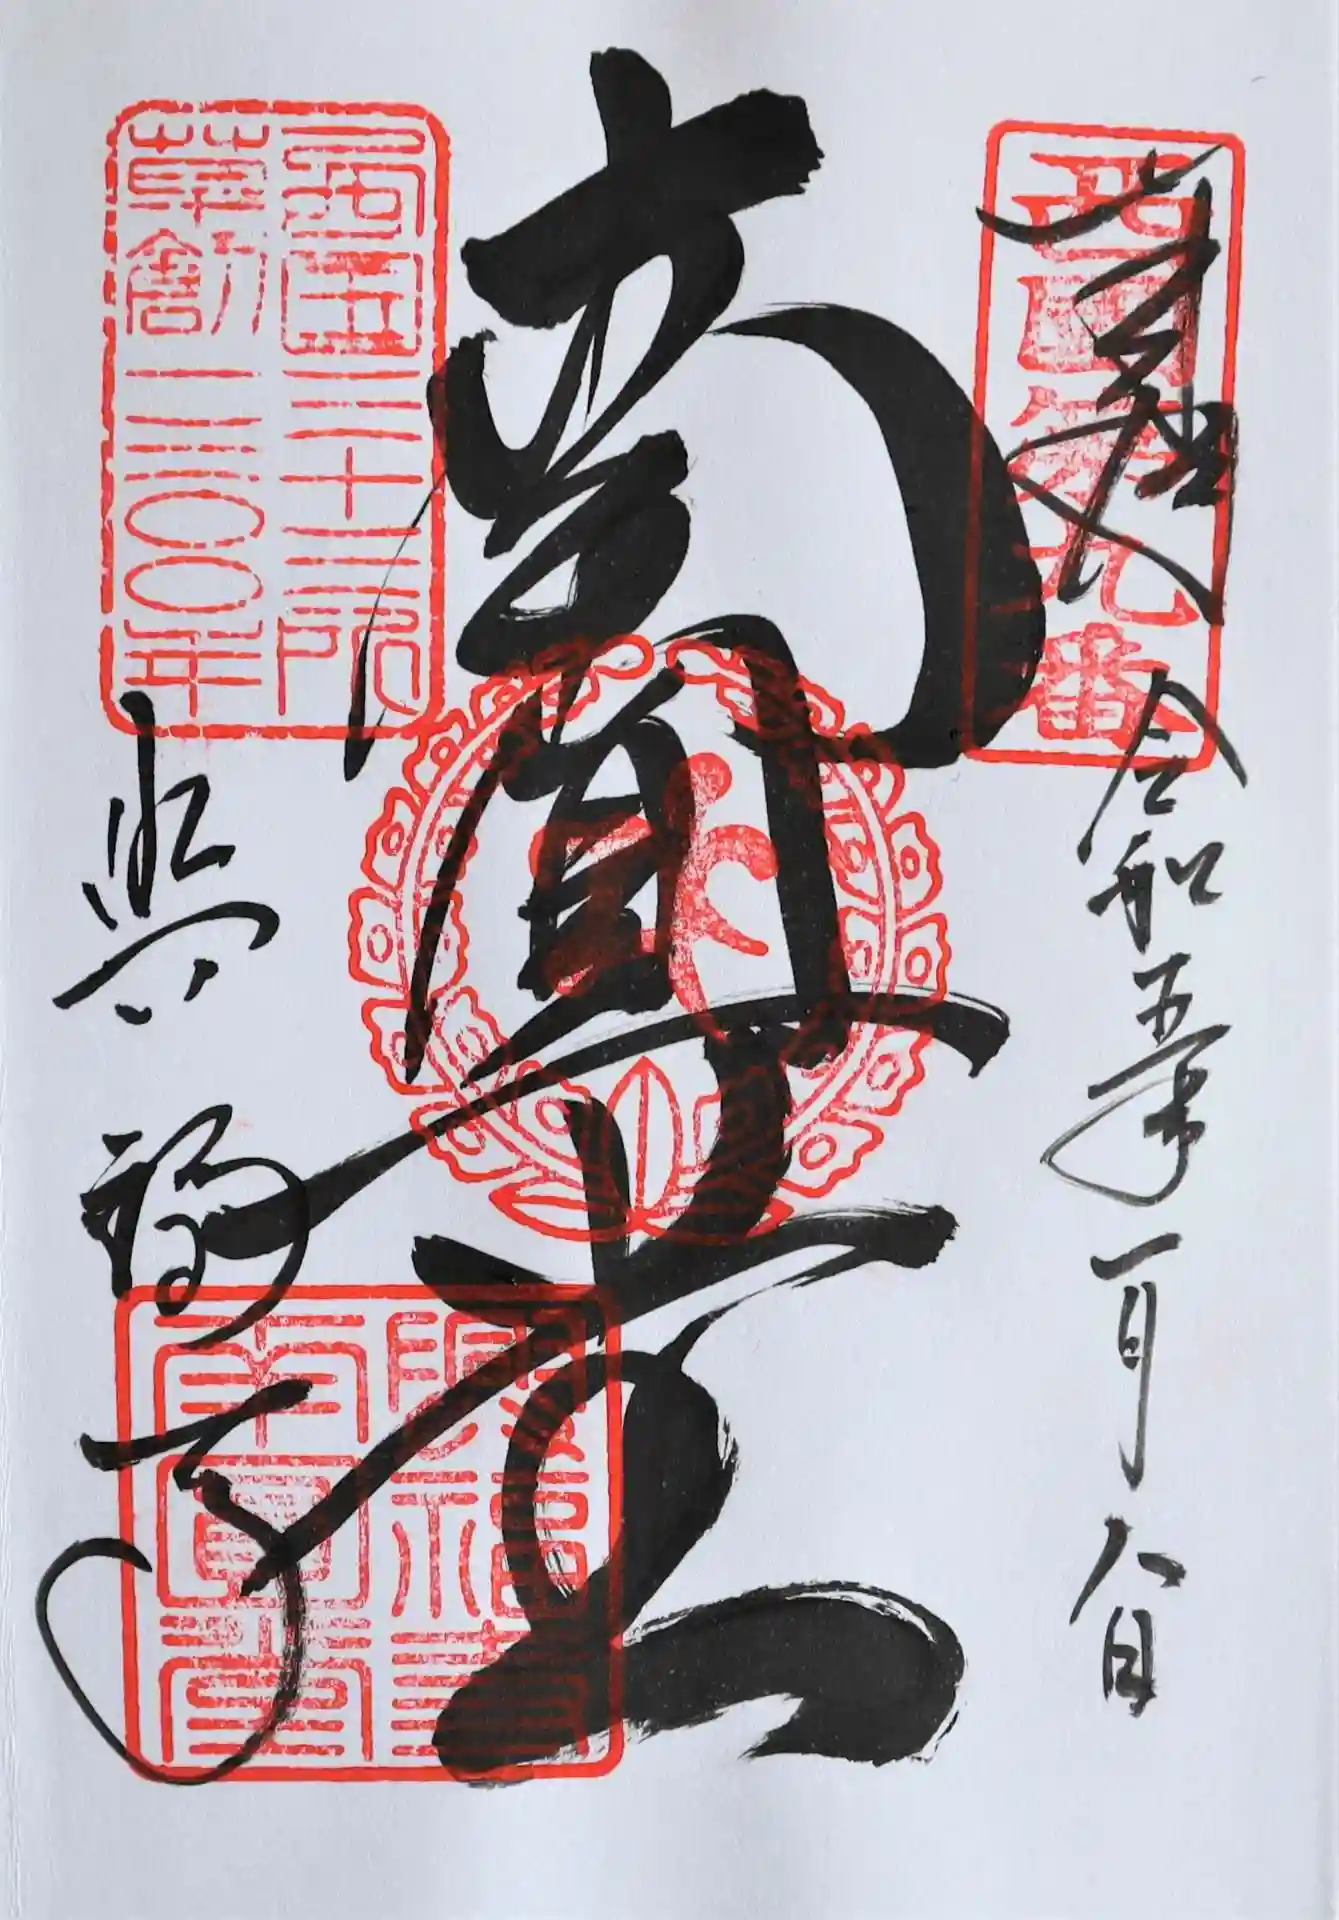 奉拝
西国第九番
令和五年一月八日
南円堂
西国三十三所
草創一三〇〇年
興福寺
興福寺
南圓堂